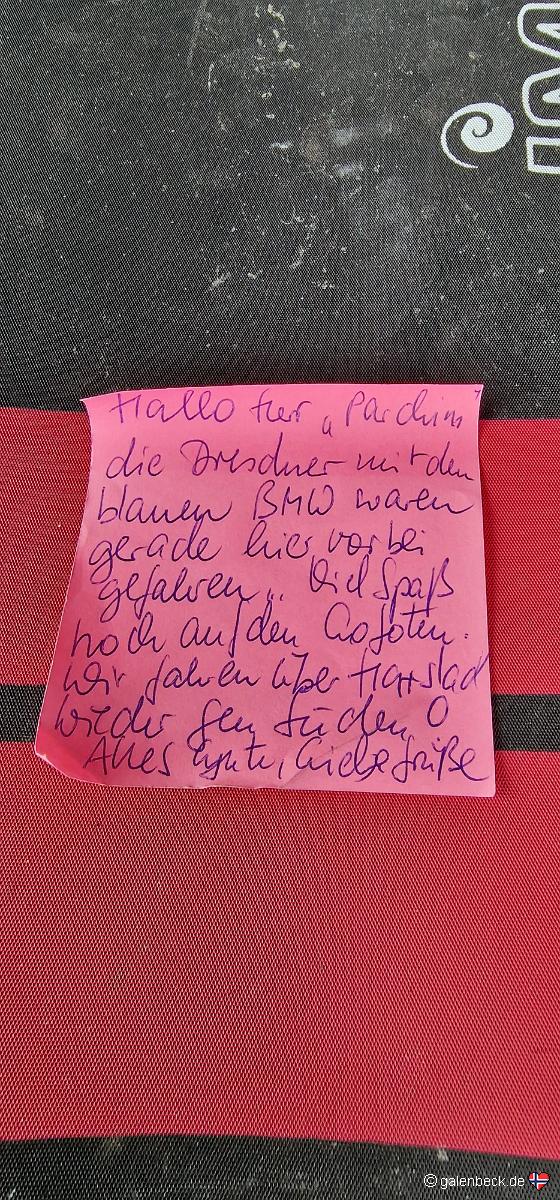 im
Hallo Herr „Parchim"
die Dresdner mit dem
blauen BMW waren
gerade hier vorbei
gefahren.. Viel Spaß
noch auf den Lofoten.
Wir fahren über Harstad
wieder gen Süden
Alles Gute, Liebe Grüße
© galenbeck.de